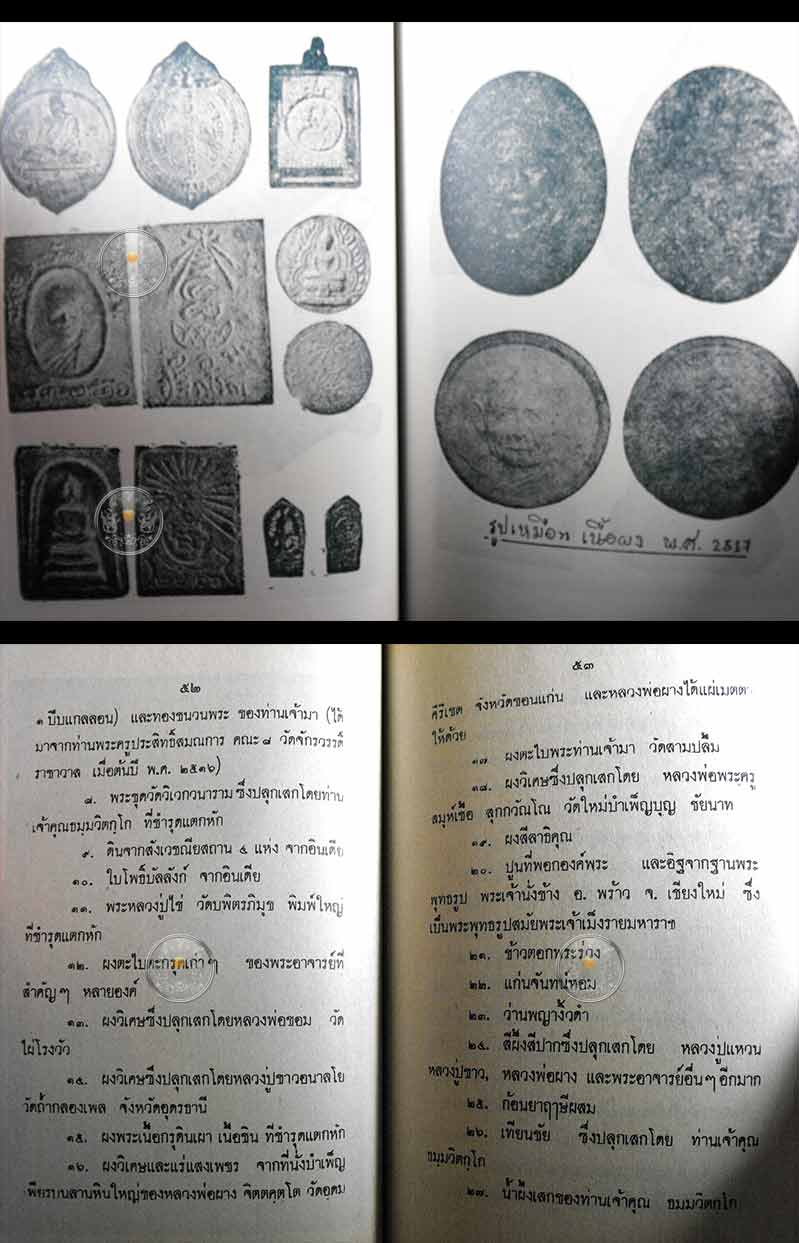 รูปเหมือน เนื้อผง พ.ศ. 2517
๕๒
๑ ปี๊บแกลลอน) และทองชนวนพระ ของท่านเจ้ามา (ได้
มาจากท่านพระครูประสิทธิ์สมณการ คณะ ๘ วัดจักรวรรดิ์
ราชาวาส เมื่อต้นปี พ.ศ. ๒๕๑๖)
๘. พระชุดวัดวิเวกวนาราม ซึ่งปลุกเสกโดยท่าน
เจ้าคุณธมฺมวิตกฺโก ที่ชำรุดแตกหัก
๙. ดินจากสังเวชณียสถาน ๔ แห่ง จากอินเดีย
๑๐. ใบโพธิ์บัลลังก์ จากอินเดีย
๑๑. พระหลวงปู่ไข่ วัดบพิตรภิมุข พิมพ์ใหญ่
ที่ชำรุดแตกหัก
๑๒. ผงตะไบตะกรุดเก่า ๆ ของพระอาจารย์ที่
สำคัญ ๆ หลายองค์
๑๓. ผงวิเศษซึ่งปลุกเสกโดยหลวงพ่อขอม วัด
ไผ่โรงวัว
๑๔. ผงวิเศษซึ่งปลุกเสกโดยหลวงปู่ขาวอนาลโย
วัดถ้ำกลองเพล จังหวัดอุดรธานี
๑๕. ผงพระเนื้อกรุดินเผา เนื้อชิน ที่ชำรุดแตกหัก
๑๖. ผงวิเศษและแร่แสงเพชร จากที่นั่งบำเพ็ญ
เพียรบนลานหินใหญ่ของหลวงพ่อผาง จิตตคุตโต วัดอุดม
๕๓
คีรีเขต จังหวัดขอนแก่น และหลวงพ่อผางได้แผ่เมตตา
ให้ด้วย
๑๗. ผงตะไบพระท่านเจ้ามา วัดสามปลื้ม
๑๘. ผงวิเศษซึ่งปลุกเสกโดย หลวงพ่อพระครู
สมุห์เชื้อ สุกกวัณโณ วัดใหม่บำเพ็ญบุญ ชัยนาท
๑๙. ผงสีลาธิคุณ
๒๐. ปูนที่พอกองค์พระ และอิฐจากฐานพระ
พุทธรูป พระเจ้านั่งช้าง อ. พร้าว จ. เชียงใหม่ ซึ่ง
เป็นพระพุทธรูปสมัยพระเจ้าเม็งรายมหาราช
๒๑. ข้าวตอกพระร่วง
๒๒. แก่นจันทน์หอม
๒๓. ว่านพญางิ้วดำ
๒๔. สีผึ้งสีปากซึ่งปลุกเสกโดย หลวงปู่แหวน
หลวงปู่ขาว, หลวงพ่อผาง และพระอาจารย์อื่น ๆ อีกมาก
๒๕. ก้อนยาฤๅษีผสม
๒๖. เทียนชัย ซึ่งปลุกเสกโดย ท่านเจ้าคุณ
ธมฺมวิตกฺโก
๒๗. น้ำผึ้งเสกของท่านเจ้าคุณ ธมฺมวิตกฺโก